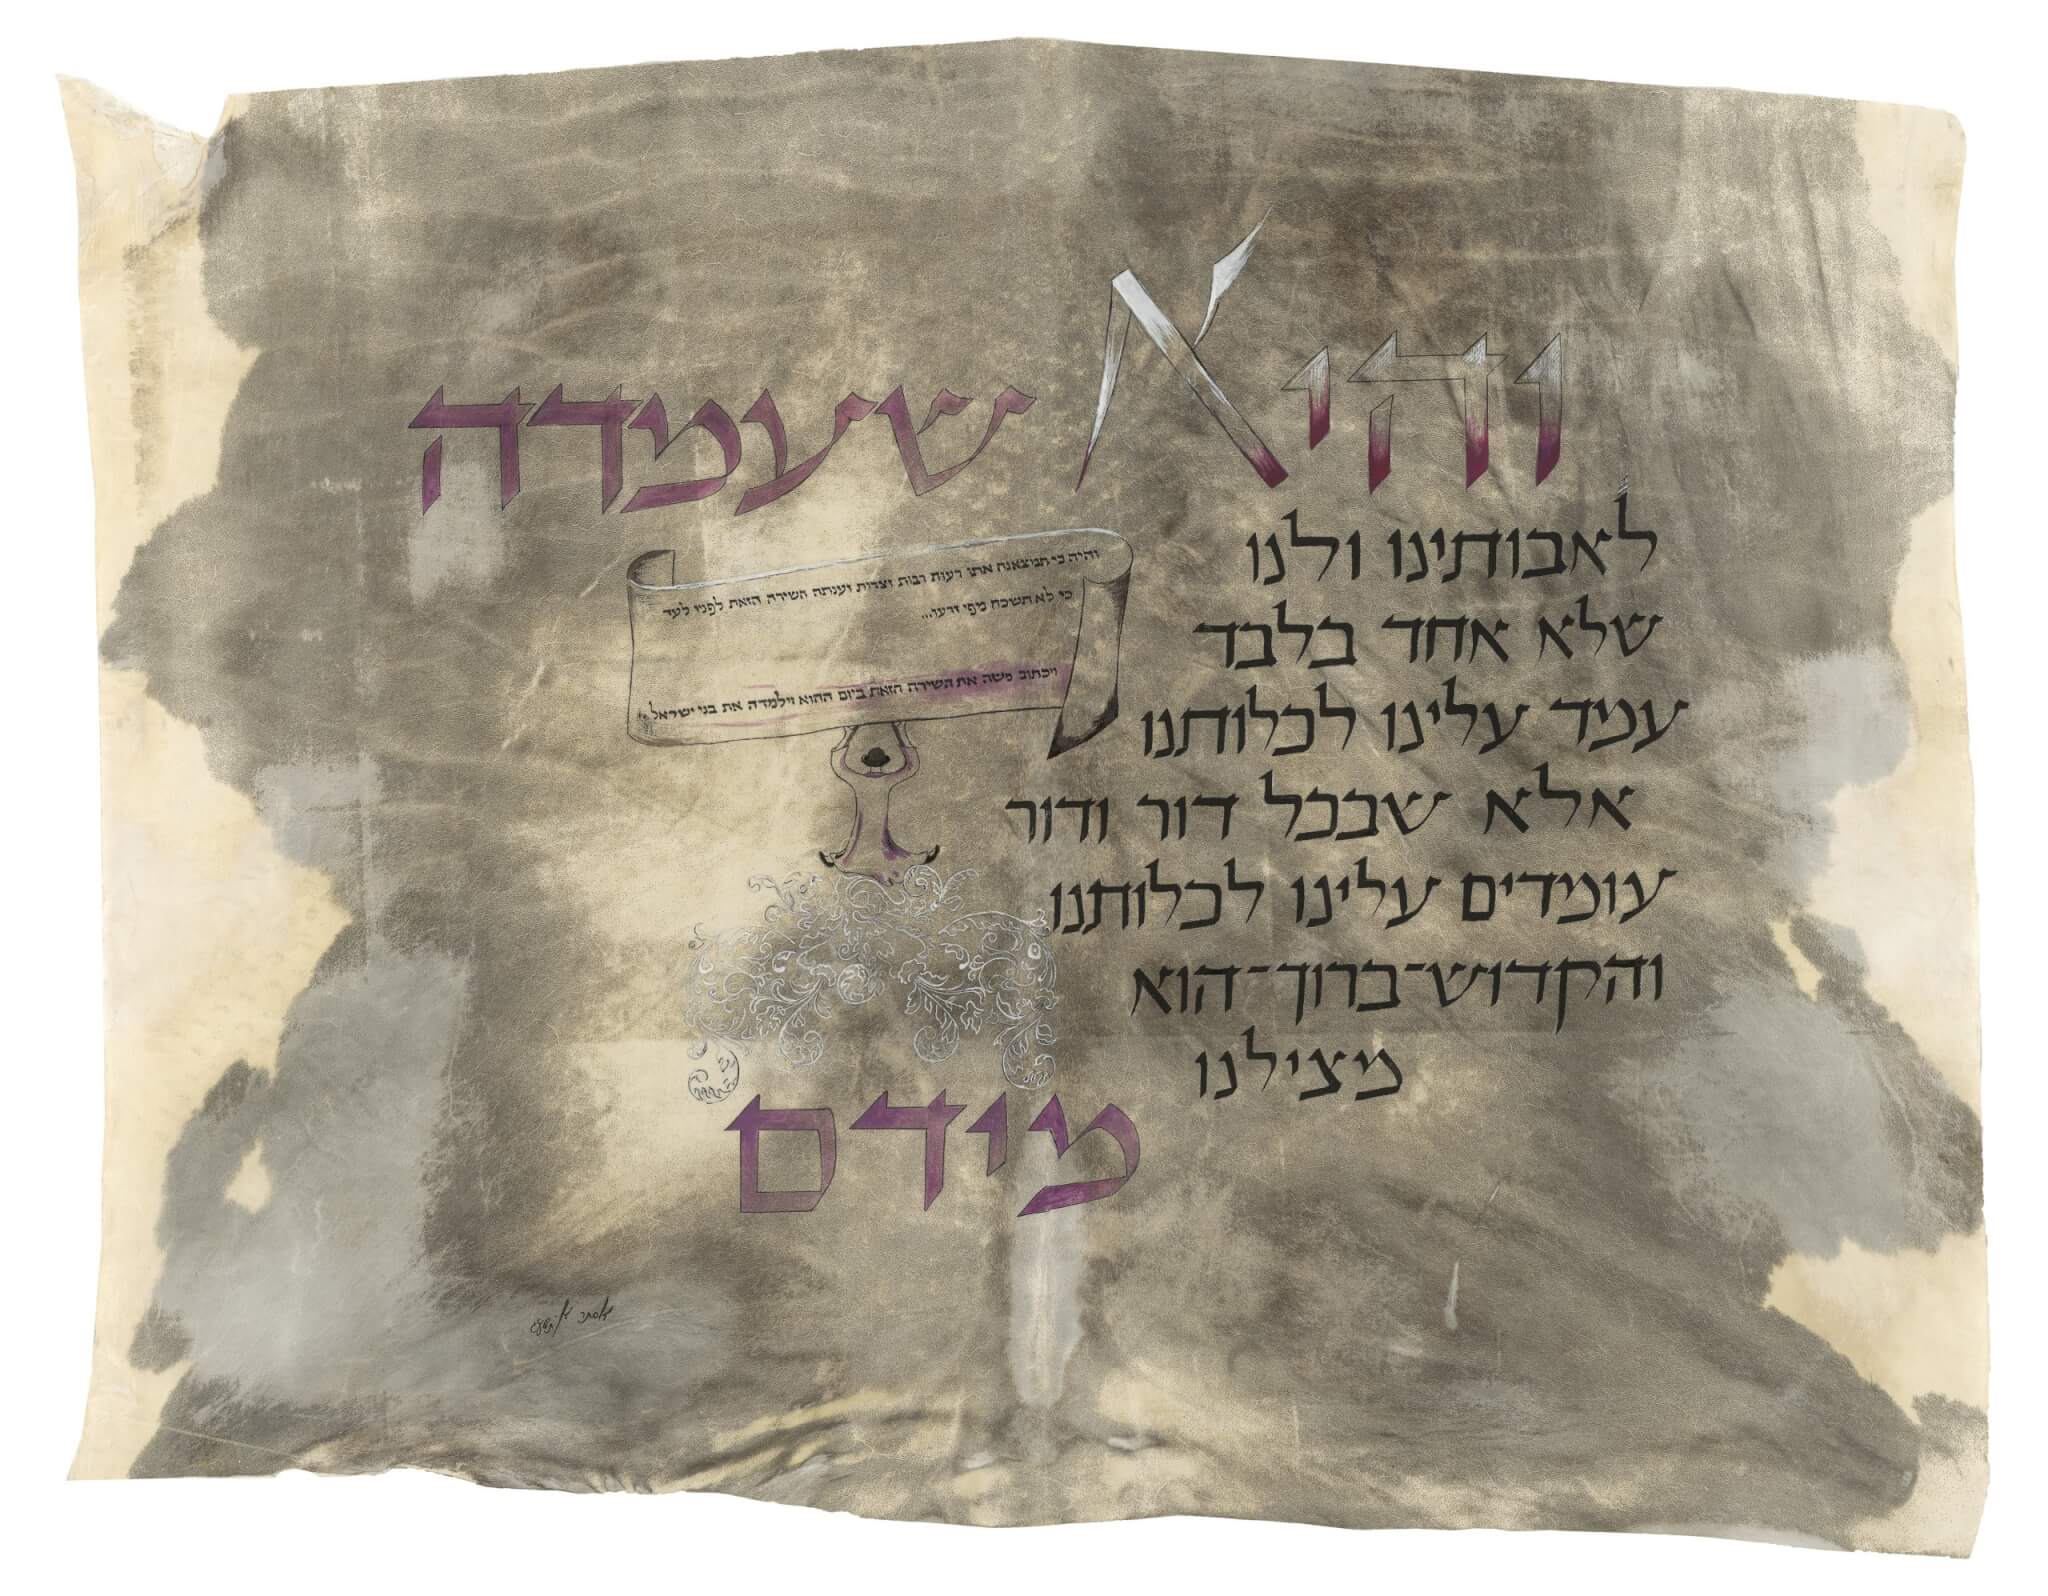 והיא שעמדה
לאבותינו ולנו
שלא אחד בלבד
עמד עלינו לכלותנו
אלא שבכל דור ודור
עומדים עלינו לכלותנו
והקדוש־ברוך־הוא
מצילנו
מידם
והיה כי תמצאנה אתו רעות רבות וצרות וענתה השירה הזאת לפניו לעד
כי לא תשכח מפי זרעו...
ויכתוב משה את השירה הזאת ביום ההוא וילמדה את בני ישראל..